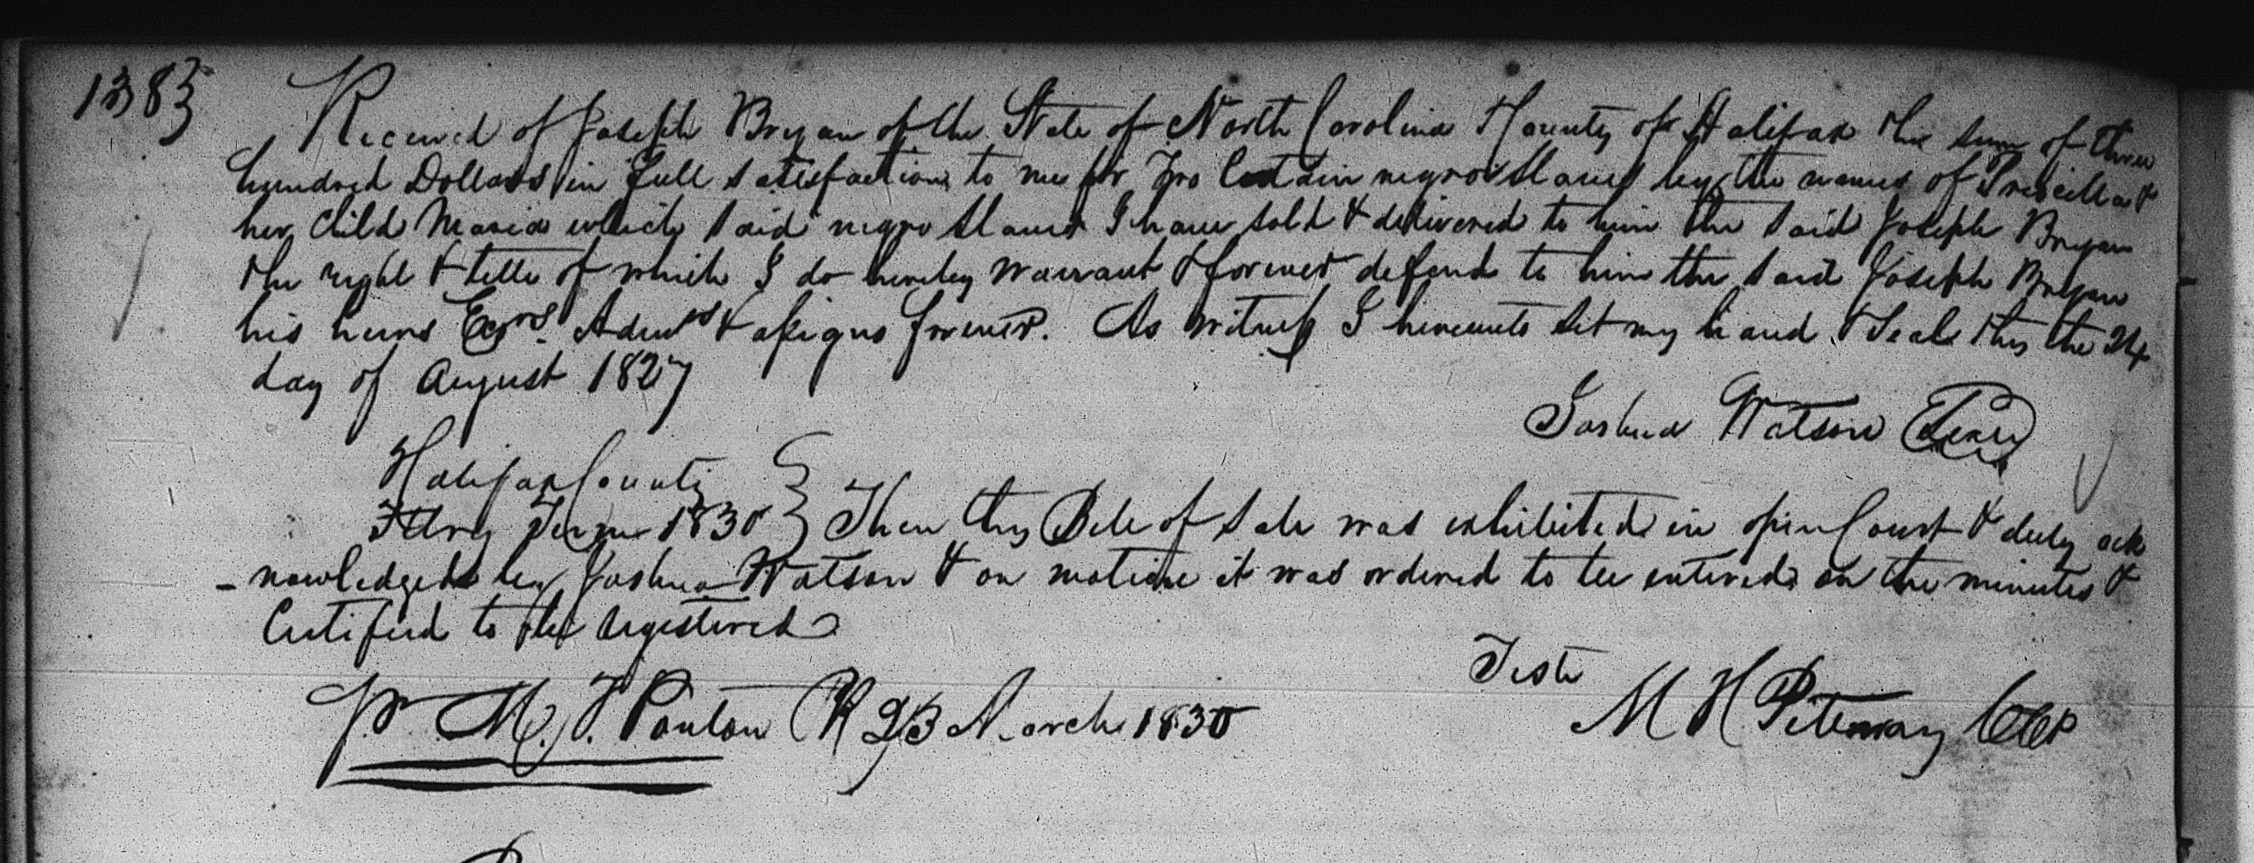 1383
Received of Joseph Bryan of the State of North Carolina & County of Halifax the sum of three
hundred Dollars in full satisfaction to me for Two Certain negro Slaves by the names of Priscilla &
her Child Maria which said negro Slaves I have sold & delivered to him the said Joseph Bryan
the right & title of which I do hereby warrant & forever defend to him the said Joseph Bryan
his heirs Exors. Admrs & assigns forever. As witness I hereunto set my hand & seal this the 24
day of August 1827
Joshua Watson Seal
Halifax County
Feby Term 1830 } Then this Bill of Sale was exhibited in open Court & duly ack
-nowledged by Joshua Watson & on motion it was ordered to be entered on the minutes &
Certified to be registered
Teste
Pr M. T. Ponton PR 23 March 1830
M H Pitteway CCC